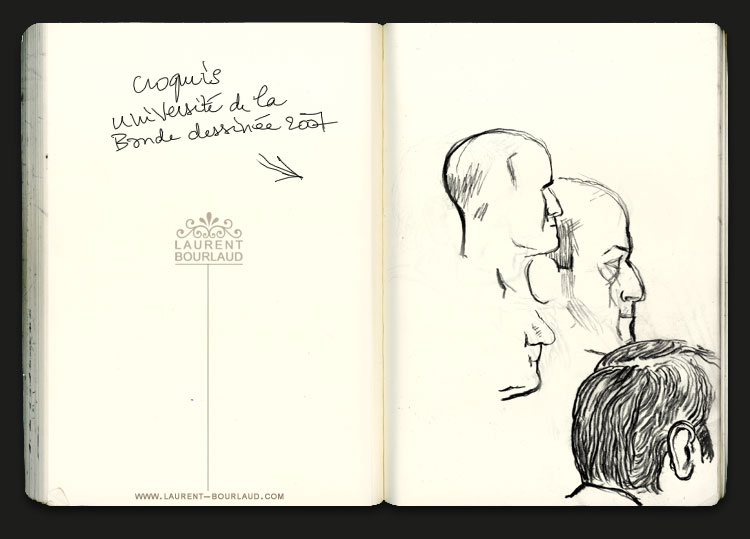 croquis
université de la
Bande dessinée 2007
LAURENT
BOURLAUD
WWW.LAURENT-BOURLAUD.COM